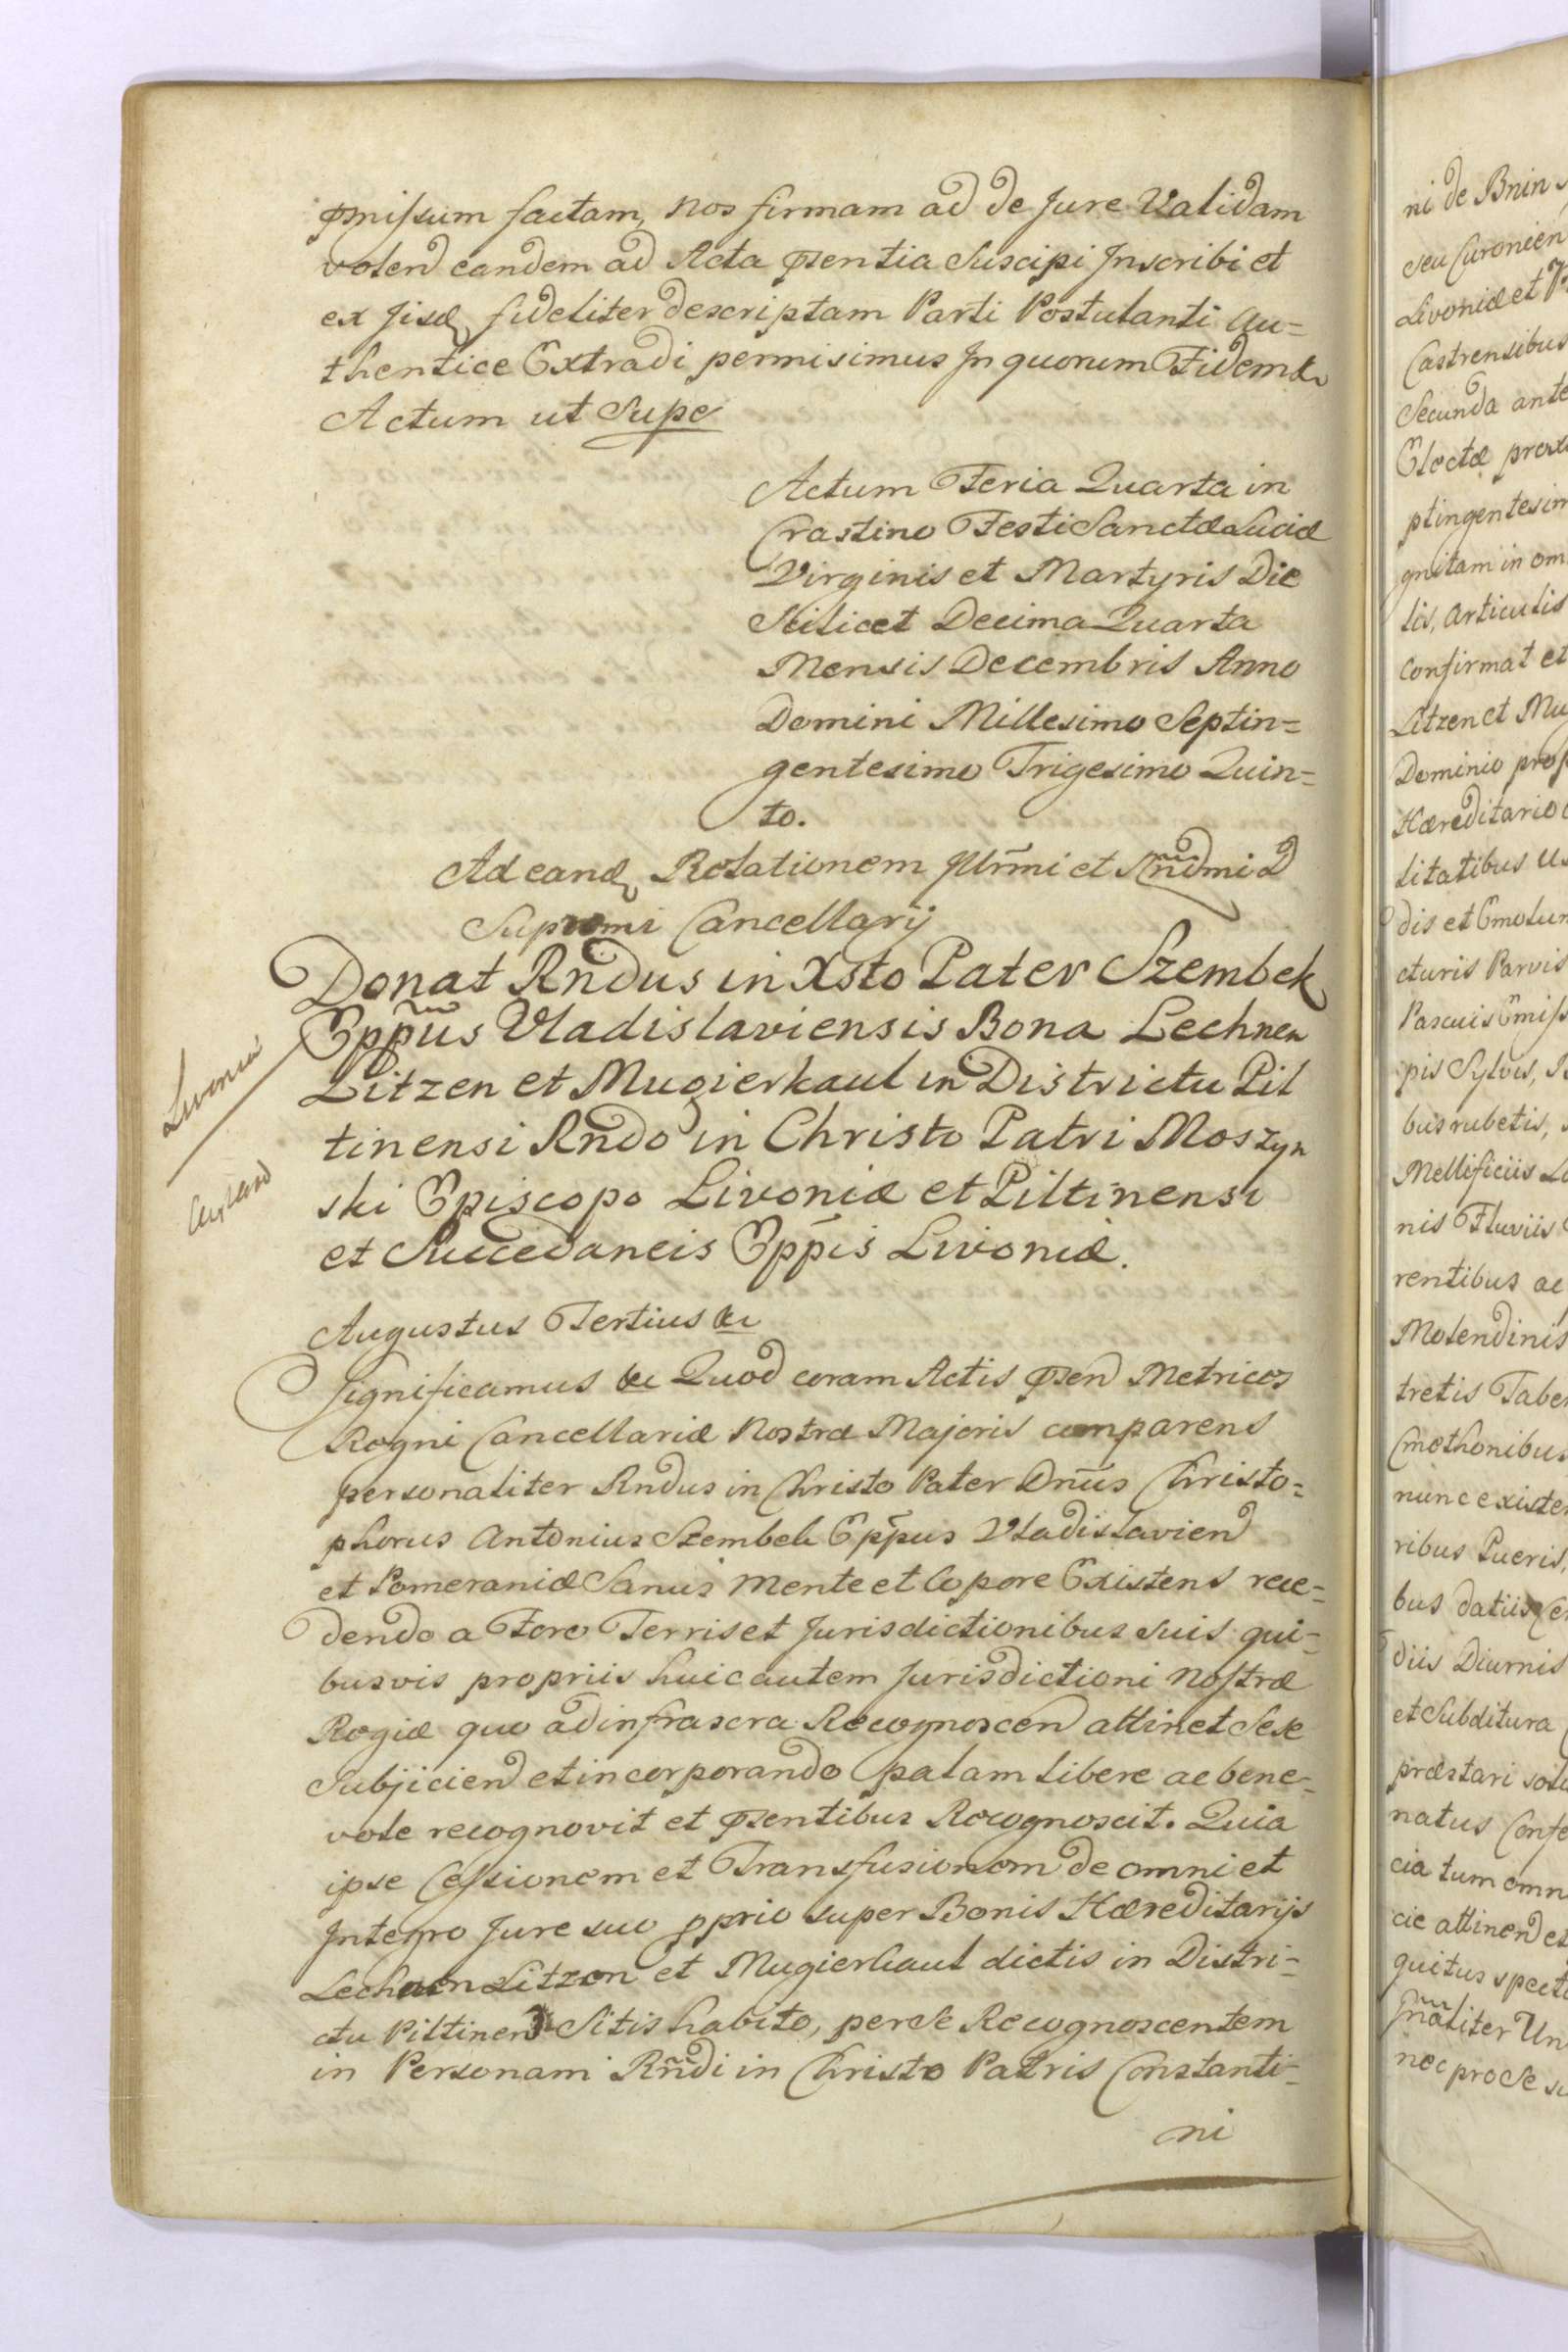 pmissum factam, nos firmam ad de Jure Validam
volend eandem ad Acta psentia Suscipi Inscribi et
ex Jisd fideliter descriptam Parti Postulanti Au=
thentice Extradi permisimus In quorum Fidem &c
Actum ut Supe
Actum Feria Quarta in
Crastino Festi Sanctæ Luciæ
Virginis et Martyris Die
Scilicet Decima Quarta
Mensis Decembris Anno
Domini Millesimo Septin=
gentesimo Trigesimo Quin=
to.
Ad eand Relationem Illrmi et Rndmi D
Supremi Cancellarij
Donat Rndus in Xsto Pater Szembek
Eppus Vladislaviensis Bona Lechnen
Litzen et Mugierkaul in Districtu Pil
tinensi Rndo in Christo Patri Moszyn
ski Episcopo Livoniæ et Piltinensi
et Succedaneis Eppis Livoniæ.
Livonia
Augustus Tertius &c
Significamus &c Quod coram Actis psen Metrices
Regni Cancellariæ Nostræ Majoris comparens
personaliter Rndus in Christo Pater Dnus Christo=
phorus Antonius Szembek Eppus Vladislavien
et Pomeraniæ Sanus mente et Copore Existens rece=
dendo a Foro Terris et Jurisdictionibus suis qui=
busvis propriis huic autem Jurisdictioni Nostræ
Regiæ quo ad infrascra Recognoscen attinet Sese
Subjiciend et incorporando palam libere ac bene=
vole recognovit et psentibus Recognoscit. Quia
ipse Cessionem et Transfusionem de omni et
Integro Jure suo pprio super Bonis Hæreditarijs
Lechnen Litzen et Mugierkaul dictis in Distri=
ctu Piltinen Sitis habito, per se Recognoscentem
in Personam Rndi in Christo Patris Constanti=
ni
ni de Bnin
seu Curonien
Livoniæ et
Castrensibus
Secunda ante
Electæ prox
ptingentesim
gnitam in om
lis, Articulis
confirmat et
Litzen et Mu
Dominio prop
Hæreditario
litatibus us
dis et Emolum
cturis Parvis
Pascuis Emiss
pis Sylvis,
bus rubetis,
Mellificiis
nis Fluviis
rentibus ac
Molendinis
tretis Taber
Cmethonibus
nunc existen
ribus Pueris,
bus datiis
diis Diurnis
et Subditura
præstari sol
natus Confe
cia tum omn
cie attinend et
quitus spect
Gnaliter Un
nec pro se